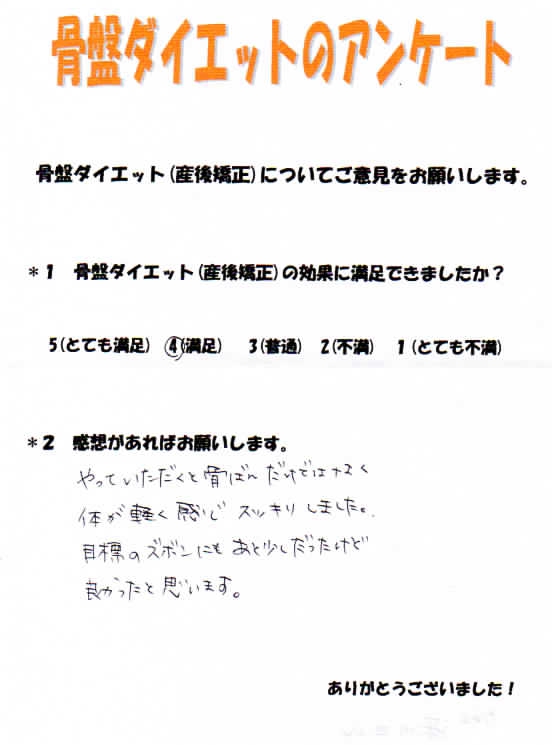 骨盤ダイエットのアンケート
骨盤ダイエット(産後矯正)についてご意見をお願いします。
＊1 骨盤ダイエット(産後矯正)の効果に満足できましたか？
5(とても満足) 4(満足) 3(普通) 2(不満) 1(とても不満)
＊2 感想があればお願いします。
やっていただくと骨ばんだけではなく
体が軽く感じスッキリしました。
目標のズボンにもあと少しだったけど
良かったと思います。
ありがとうございました！